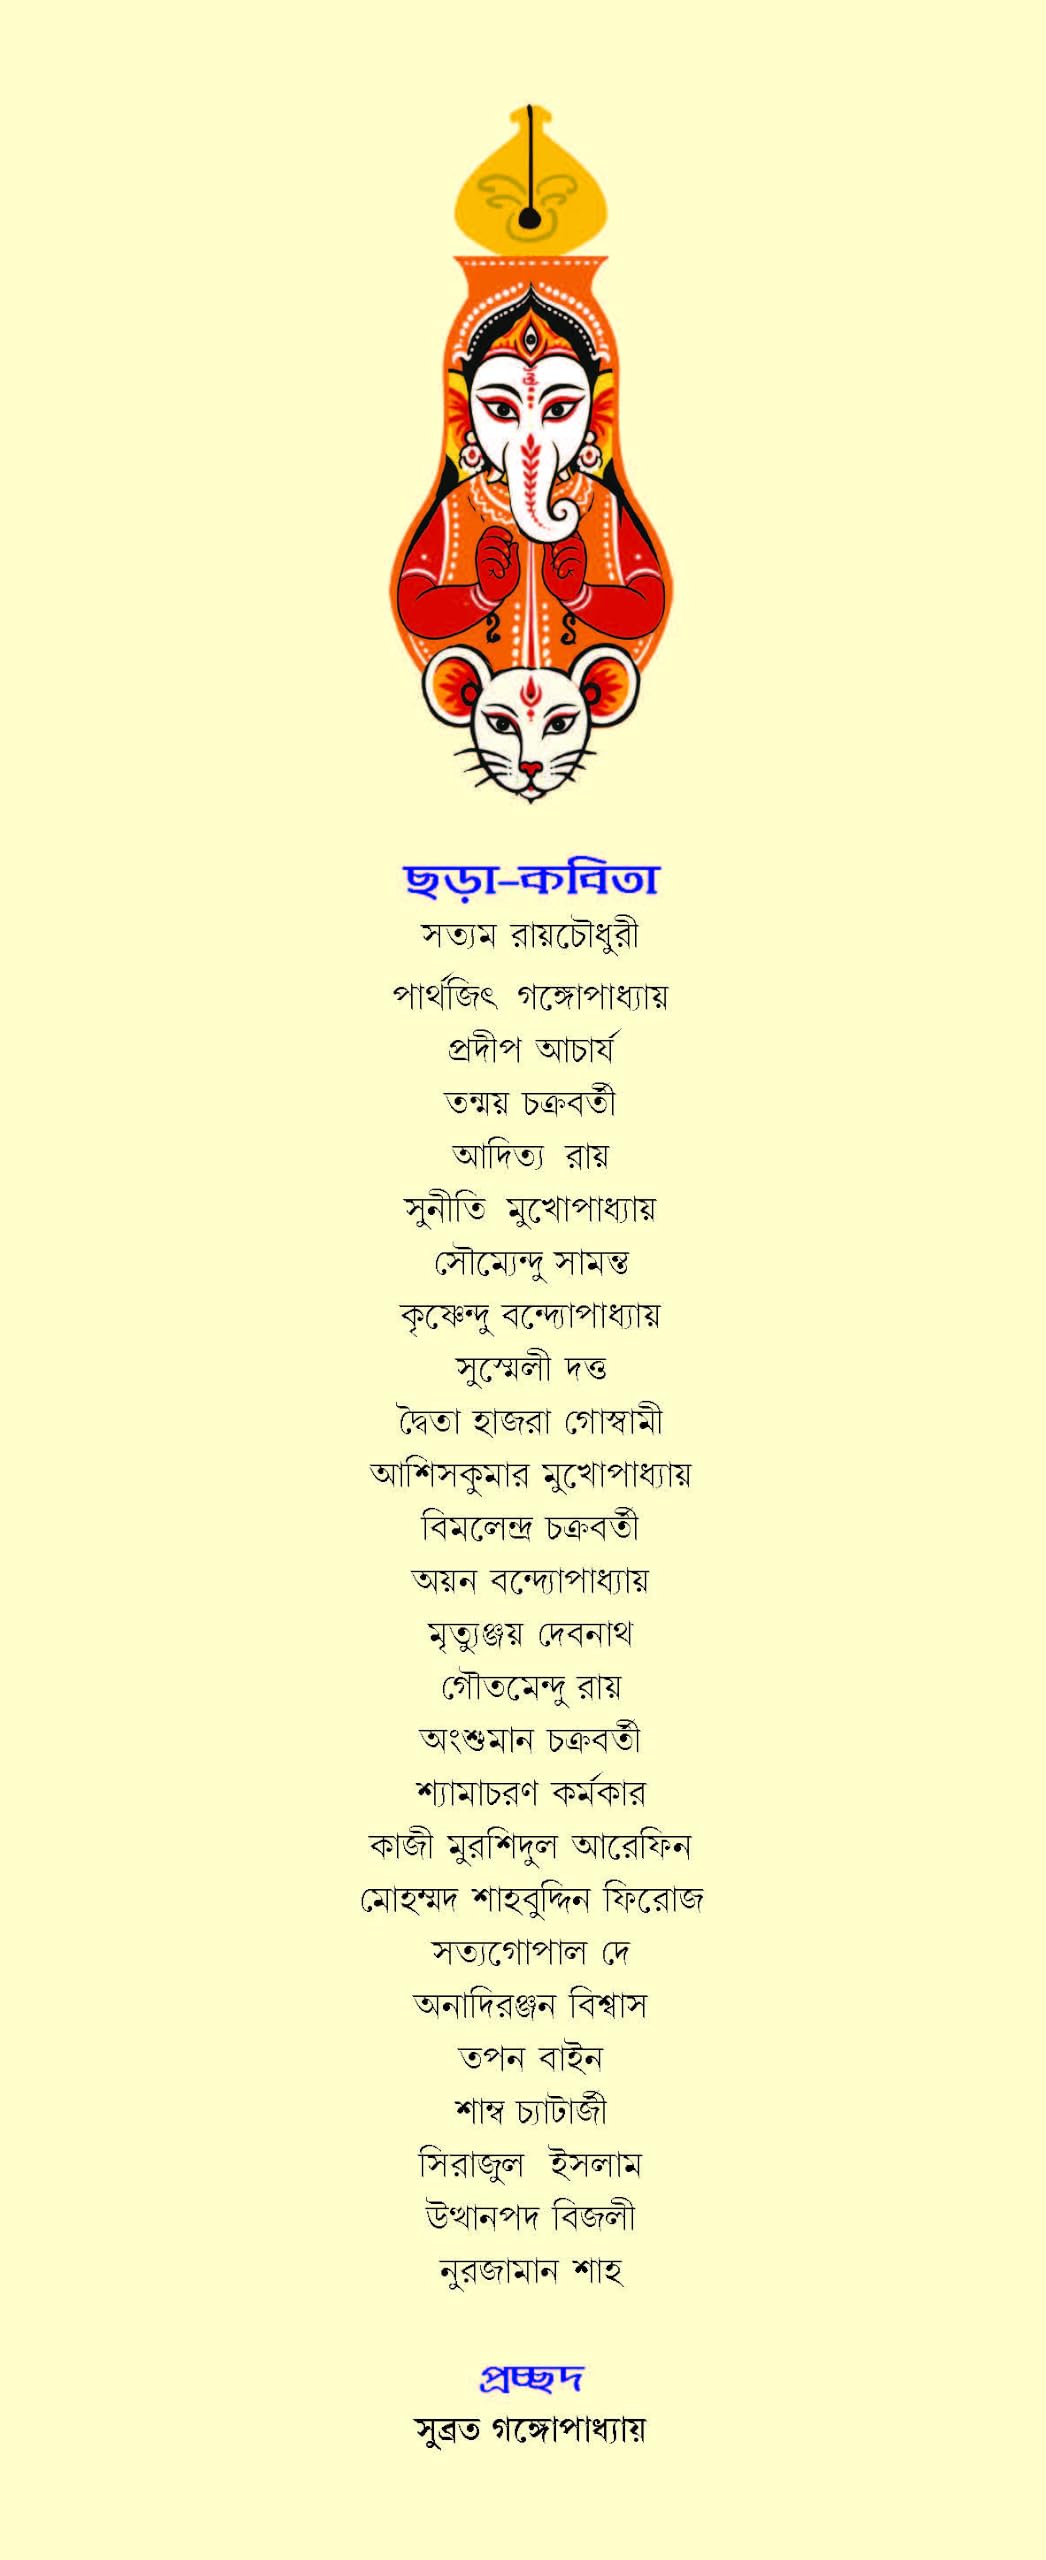 ছড়া-কবিতা
সত্যম রায়চৌধুরী
পার্থজিৎ গঙ্গোপাধ্যায়
প্রদীপ আচার্য
তন্ময় চক্রবর্তী
আদিত্য রায়
সুনীতি মুখোপাধ্যায়
সৌম্যেন্দু সামন্ত
কৃষ্ণেন্দু বন্দ্যোপাধ্যায়
সুস্মেলী দত্ত
দ্বৈতা হাজরা গোস্বামী
আশিসকুমার মুখোপাধ্যায়
বিমলেন্দ্র চক্রবর্তী
অয়ন বন্দ্যোপাধ্যায়
মৃত্যুঞ্জয় দেবনাথ
গৌতমেন্দু রায়
অংশুমান চক্রবর্তী
শ্যামাচরণ কর্মকার
কাজী মুরশিদুল আরেফিন
মোহম্মদ শাহবুদ্দিন ফিরোজ
সত্যগোপাল দে
অনাদিরঞ্জন বিশ্বাস
তপন বাইন
শাম্ব চ্যাটার্জী
সিরাজুল ইসলাম
উত্থানপদ বিজলী
নুরজামান শাহ
প্রচ্ছদ
সুব্রত গঙ্গোপাধ্যায়